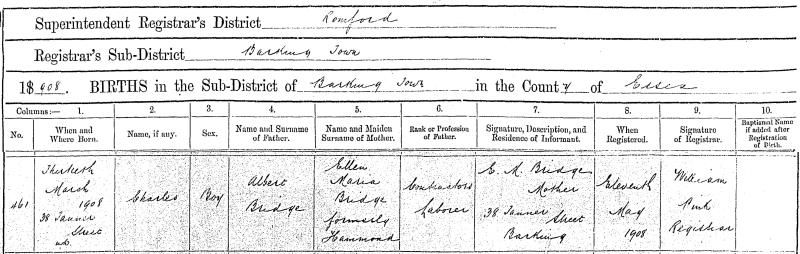 Superintendent Registrar's District Romford
Registrar's Sub-District Barking Town
1908. BIRTHS in the Sub-District of Barking Town in the County of Essex
Columns:— 1. 2. 3. 4. 5. 6. 7. 8. 9. 10.
No. When and Where Born. Name, if any. Sex. Name and Surname of Father. Name and Maiden Surname of Mother. Rank or Profession of Father. Signature, Description, and Residence of Informant. When Registered. Signature of Registrar. Baptismal Name if added after Registration of Birth.
461
Thirtieth
March
1908
38 Tanner
Street
Charles
Boy
Albert
Bridge
Ellen
Maria
Bridge
formerly
Hammond
Contractors
Laborer
E. M. Bridge
Mother
38 Tanner
Street
Barking
Eleventh
May
1908
William
Pink
Registrar